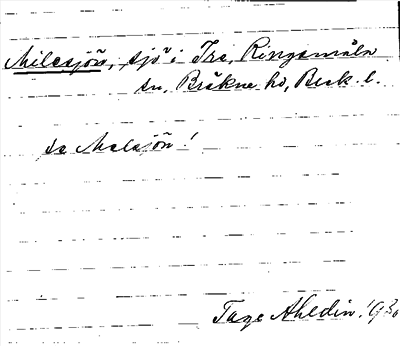 Milasjön, sjö i Tra, Ringamåla
sn, Bräkne hd, Blek. l.
se Målsjön!
Tage Ahldin! 1930